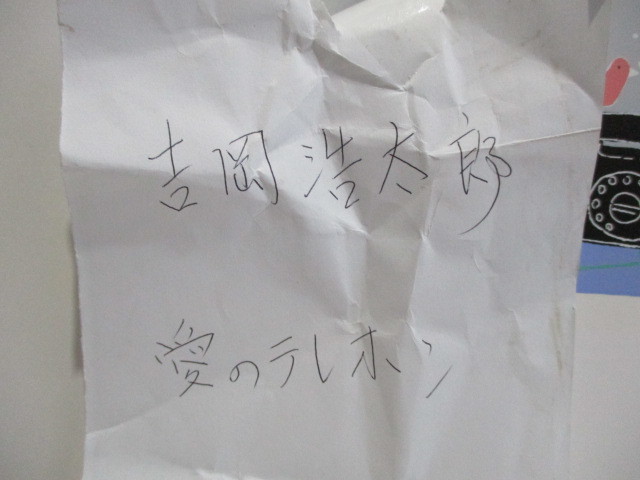 吉岡浩太郎
愛のテレホン